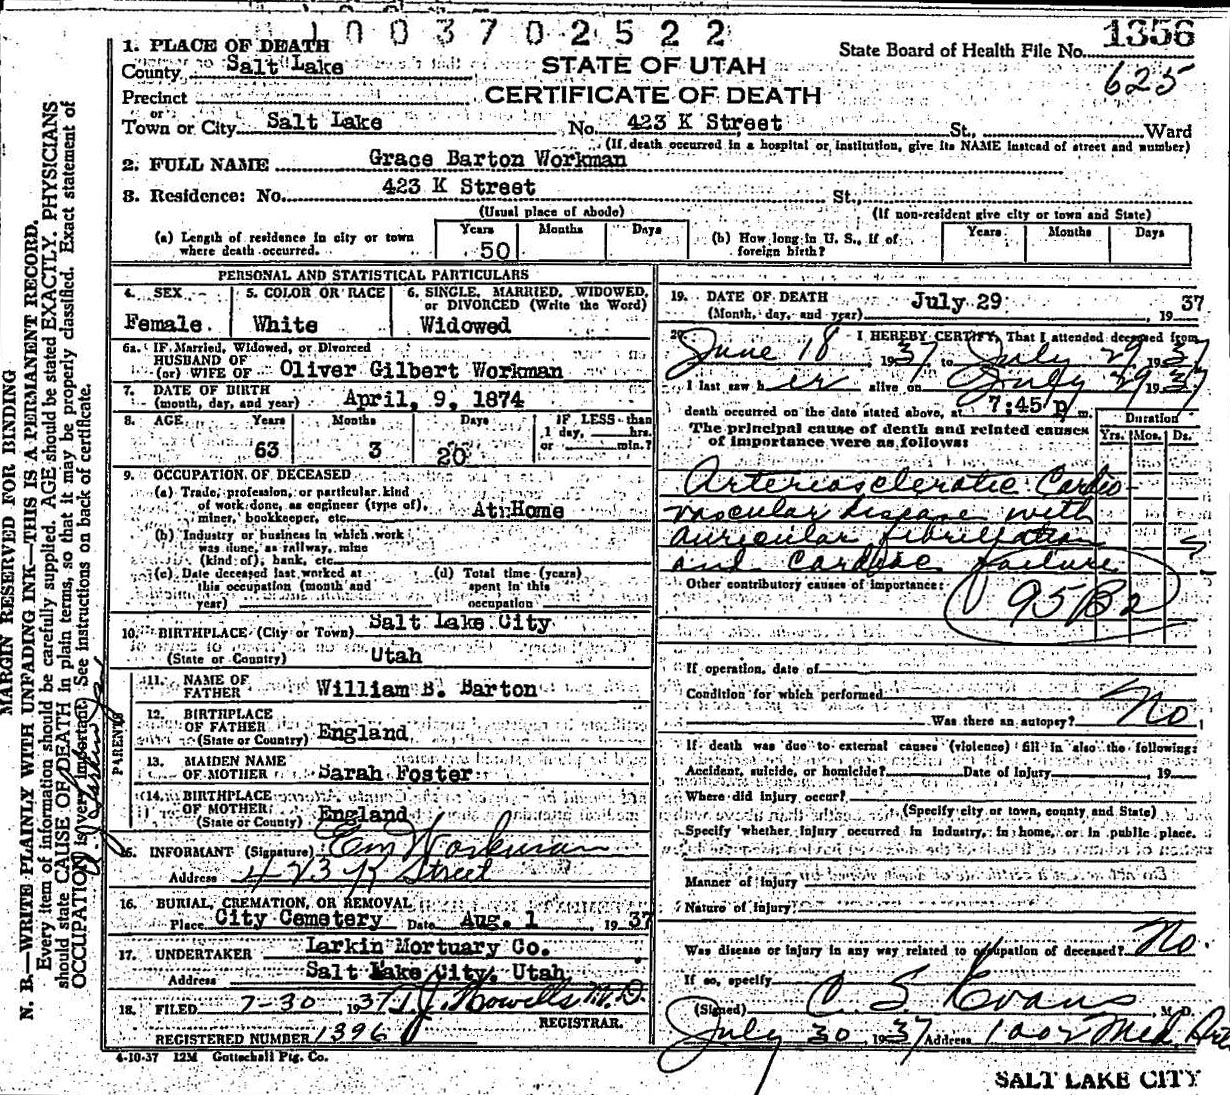 1003702522
1. PLACE OF DEATH
State Board of Health File No. 1356
County Salt Lake
STATE OF UTAH
625
Precinct
CERTIFICATE OF DEATH
or
Town or City Salt Lake No. 423 K Street St., Ward
(If death occurred in a hospital or institution, give its NAME instead of street and number)
2. FULL NAME Grace Barton Workman
3. Residence: No. 423 K Street St.,
(Usual place of abode)
(If non-resident give city or town and State)
(a) Length of residence in city or town where death occurred.
Years 50 Months Days
(b) How long in U. S., if of foreign birth?
Years Months Days
PERSONAL AND STATISTICAL PARTICULARS
4. SEX
Female
5. COLOR OR RACE
White
6. SINGLE, MARRIED, WIDOWED,
or DIVORCED (Write the Word)
Widowed
6a. IF Married, Widowed, or Divorced
HUSBAND OF
(or) WIFE OF Oliver Gilbert Workman
7. DATE OF BIRTH
(month, day, and year) April, 9, 1874
8. AGE Years Months Days IF LESS than
1 day, hrs.
63 3 20 or min.?
9. OCCUPATION OF DECEASED
(a) Trade, profession, or particular kind
of work done, as engineer (type of),
miner, bookkeeper, etc. At Home
(b) Industry or business in which work
was done, as railway, mine
(kind of), bank, etc.
(c) Date deceased last worked at
this occupation (month and
year)
(d) Total time (years)
spent in this
occupation
10. BIRTHPLACE (City or Town) Salt Lake City
(State or Country) Utah
PARENTS
11. NAME OF
FATHER William B. Barton
12. BIRTHPLACE
OF FATHER
(State or Country) England
13. MAIDEN NAME
OF MOTHER Sarah Foster
14. BIRTHPLACE
OF MOTHER
(State or Country) England
15. INFORMANT (Signature) Em Workman
Address 423 K Street
16. BURIAL, CREMATION, OR REMOVAL
Place City Cemetery Date Aug. 1 1937
17. UNDERTAKER Larkin Mortuary Co.
Address Salt Lake City, Utah
18. FILED 7-30 1937 T. J. Howells M.D.
REGISTRAR.
REGISTERED NUMBER 1396
4-10-37 12M Gottschall Ptg. Co.
19. DATE OF DEATH July 29
(Month, day, and year) 1937
20. I HEREBY CERTIFY, That I attended deceased from
June 18 1937 to July 29 1937
I last saw her alive on July 29 1937
death occurred on the date stated above, at 7:45 p m.
The principal cause of death and related causes
of importance were as follows:
Duration
Yrs. Mos. Ds.
Arteriosclerotic Cardio-
vascular disease with
auricular fibrillation
and Cardiac failure
Other contributory causes of importance:
95B2
If operation, date of
Condition for which performed
Was there an autopsy? No
If death was due to external causes (violence) fill in also the following:
Accident, suicide, or homicide? Date of Injury 19
Where did injury occur?
(Specify city or town, county and State)
Specify whether injury occurred in industry, in home, or in public place.
Manner of injury
Nature of injury
Was disease or injury in any way related to occupation of deceased? No.
If so, specify
(Signed) C. S. Evans, M. D.
July 30 1937 Address 1002 Med. Arts
SALT LAKE CITY
MARGIN RESERVED FOR BINDING
N. B.—WRITE PLAINLY WITH UNFADING INK—THIS IS A PERMANENT RECORD.
Every item of information should be carefully supplied. AGE should be stated EXACTLY. PHYSICIANS
should state CAUSE OF DEATH in plain terms, so that it may be properly classified. Exact statement of
OCCUPATION is very important. See instructions on back of certificate.